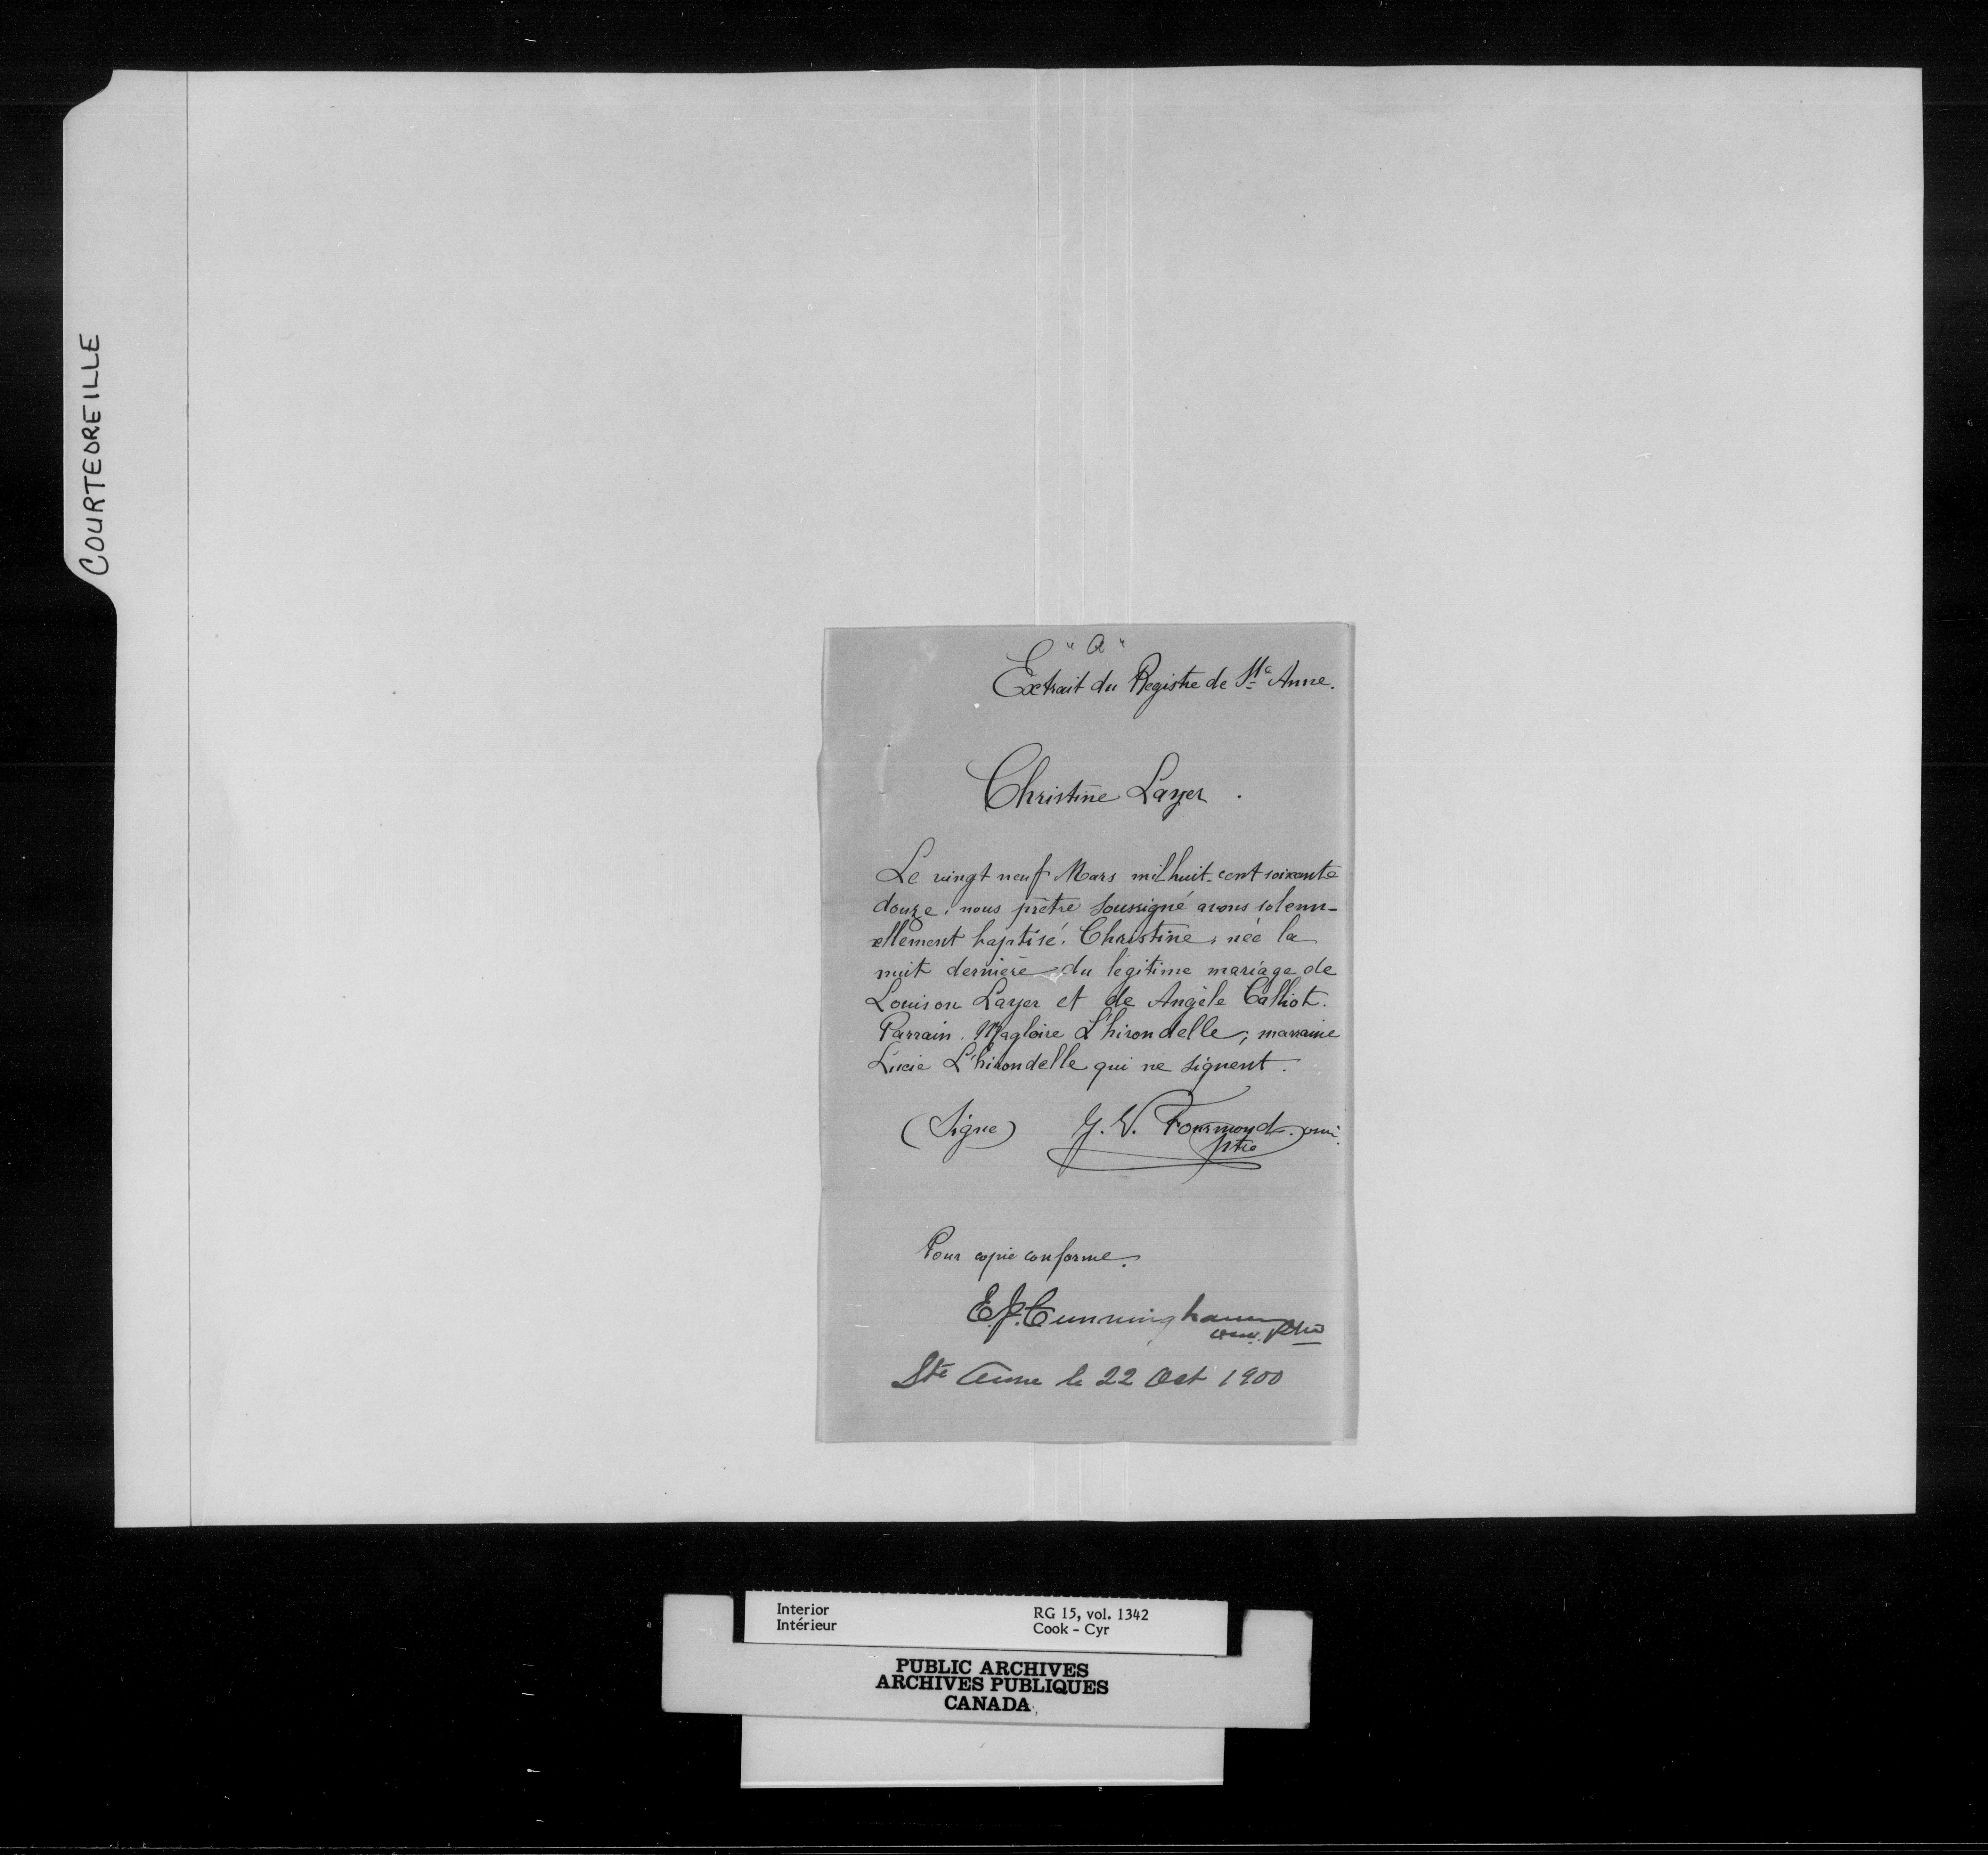 COURTEOREILLE
"a"
Extrait du Registre de Ste Anne.
Christine Layer.
Le vingt neuf Mars mil huit-cent soixante
douze, nous prêtre soussigné avons solenn-
ellement baptisé Christine, née la
nuit dernière du légitime mariage de
Louison Layer et de Angèle Calliot.
Parrain. Magloire L'hirondelle; marraine
Lucie L'hirondelle qui ne signent.
(Signe) J. V. Fourmond. omi.
ptre
Pour copie conforme.
E. J. Cunningham
omi. ptre
Ste Anne le 22 Oct 1900
Interior RG 15, vol. 1342
Intérieur Cook - Cyr
PUBLIC ARCHIVES
ARCHIVES PUBLIQUES
CANADA